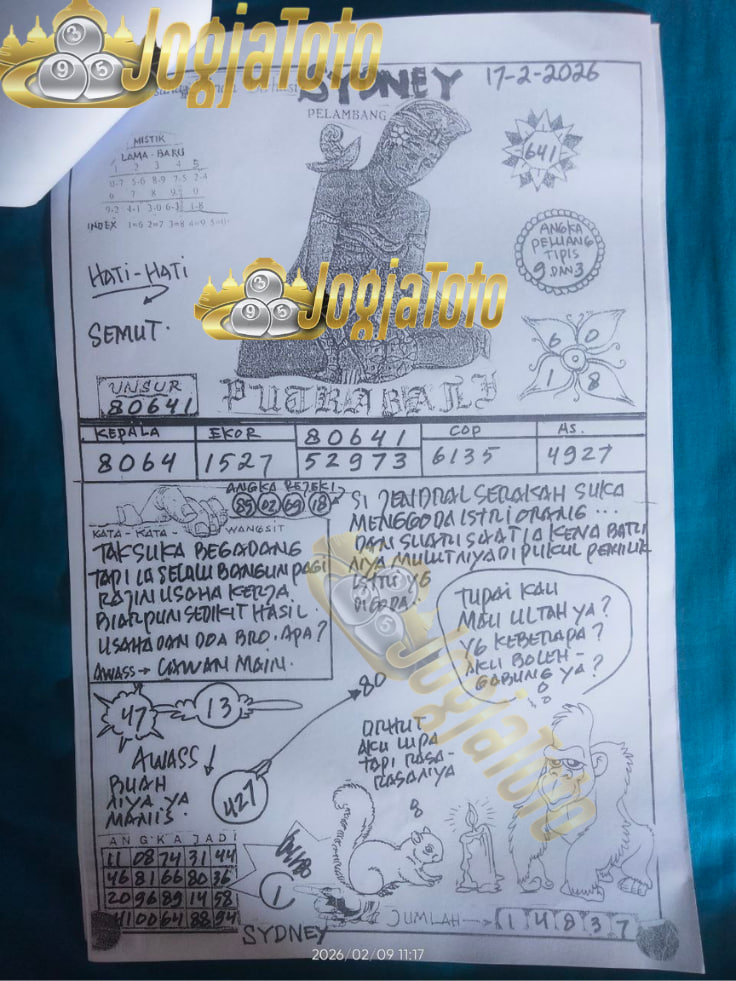 JogjaToto
SYDNEY 17-2-2026
PELAMBANG
MISTIK
LAMA - BARU
1 2 3 4 5
0-7 5-6 8-9 7-5 2-4
6 7 8 9 0
9-2 4-1 3-0 6-3 1-8
INDEX 1=6 2=7 3=8 4=9 5=0
641
ANGKA
PELUANG
TIPIS
9 DAN 3
HATI-HATI
SEMUT.
JogjaToto
6 0
1 8
UNSUR
80641
PUTRA BALI
KEPALA EKOR 80641 COP AS.
8064 1527 52973 6135 4927
ANGKA REJEKI
89 02 69 18
KATA - KATA - WANGSIT
TAK SUKA BEGADANG
TAPI IA SELALU BANGUN PAGI
RAJIN USAHA KERJA.
BIARPUN SEDIKIT HASIL.
USAHA DAN DOA BRO. APA?
AWASS → CAWAN MAIN.
SI JENDRAL SERAKAH SUKA
MENGGODA ISTRI ORANG...
DAN SUATU SAAT IA KENA BATU
NIYA MULUTNIYA DI PUKUL PEMILIK
ISTRI YG
DIGODA..
TUPAI KAU
MAU ULTAH YA?
YG KEBERAPA?
AKU BOLEH -
GABUNG YA?
JogjaToto
47 13
80
AWASS
427
BUAH
NIYA YA
MANIS.
AKU LUPA
TAPI RASA-
RASANIYA
8
ANGKA JADI
11 08 74 31 44
46 81 66 80 36
20 96 89 14 58
41 00 64 88 94
1
SYDNEY
JUMLAH → 1 4 8 3 7
2026/02/09 11:17